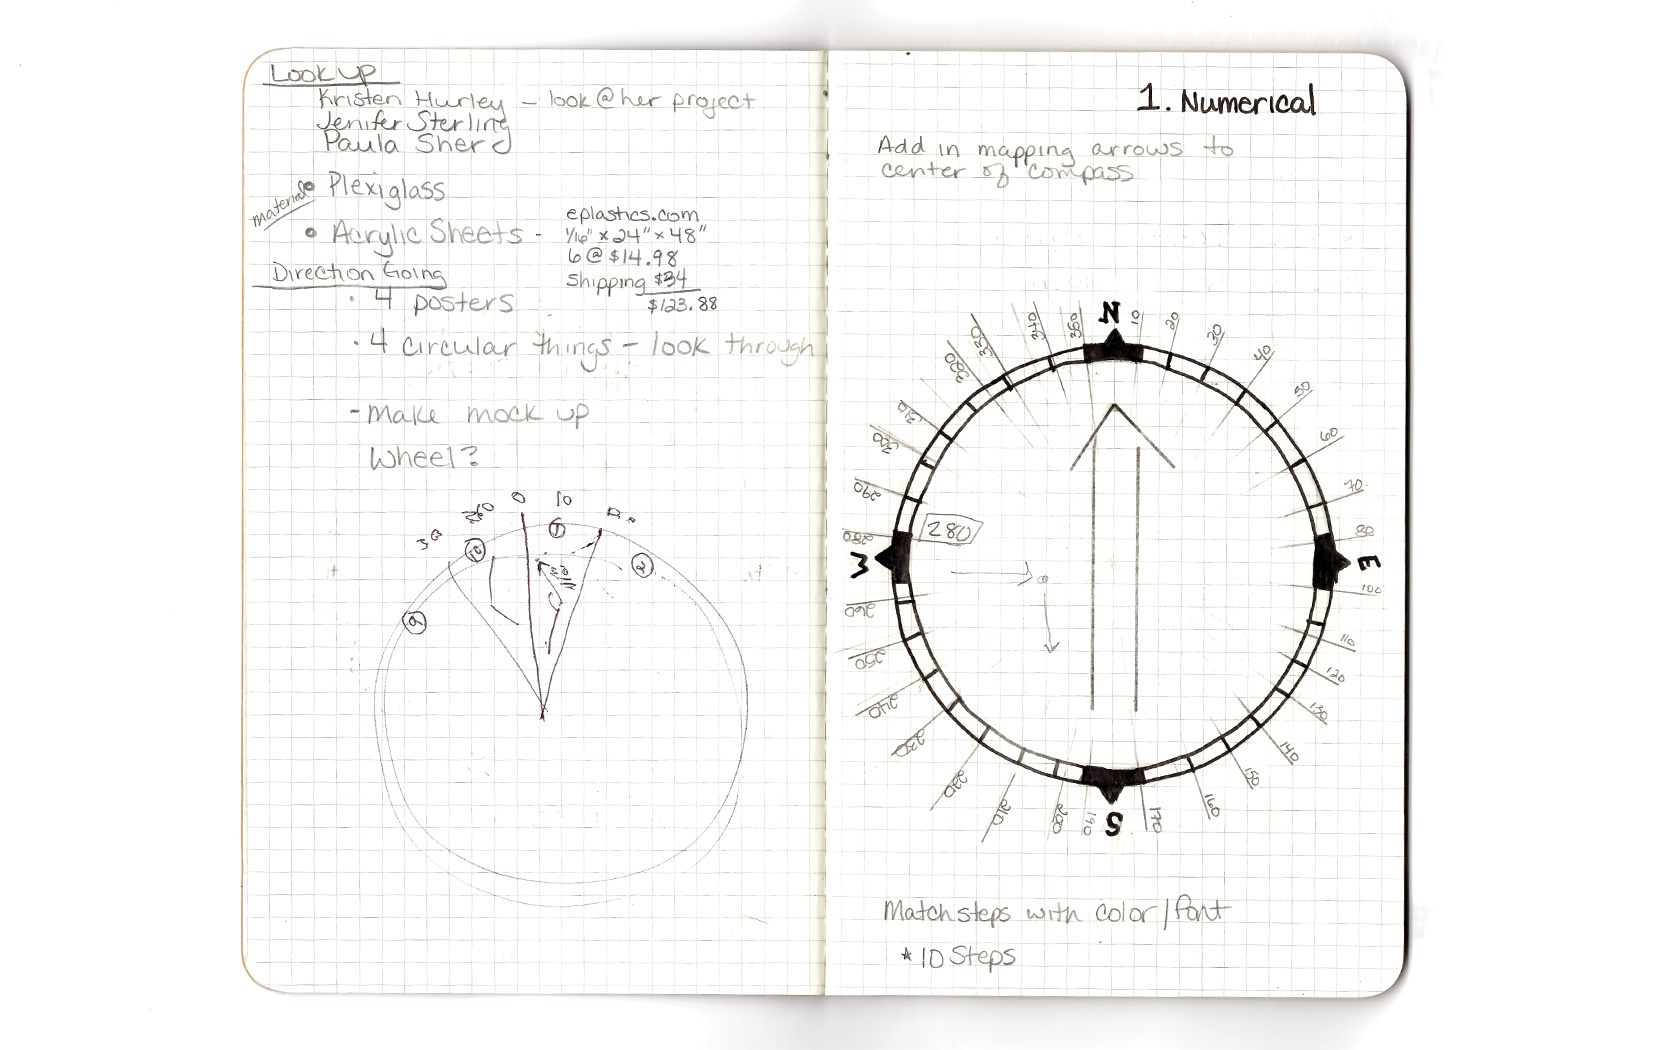 Look up
Kristen Hurley – look @ her project
Jenifer Sterling
Paula Sherd
materials
• Plexiglass
• Acrylic Sheets -
eplastics.com
1/16" x 24" x 48"
6 @ $14.98
Shipping $34
$123.88
Direction Going
· 4 posters
· 4 circular things – look through
- Make mock up
Wheel?
0
10
360
1
2
9
1. Numerical
Add in mapping arrows to
center of compass
N
10
20
30
40
50
60
70
80
E
100
110
120
130
140
150
160
170
S
190
200
210
220
230
240
250
260
W
280
280
290
300
310
320
330
340
350
Match steps with color/font
* 10 Steps